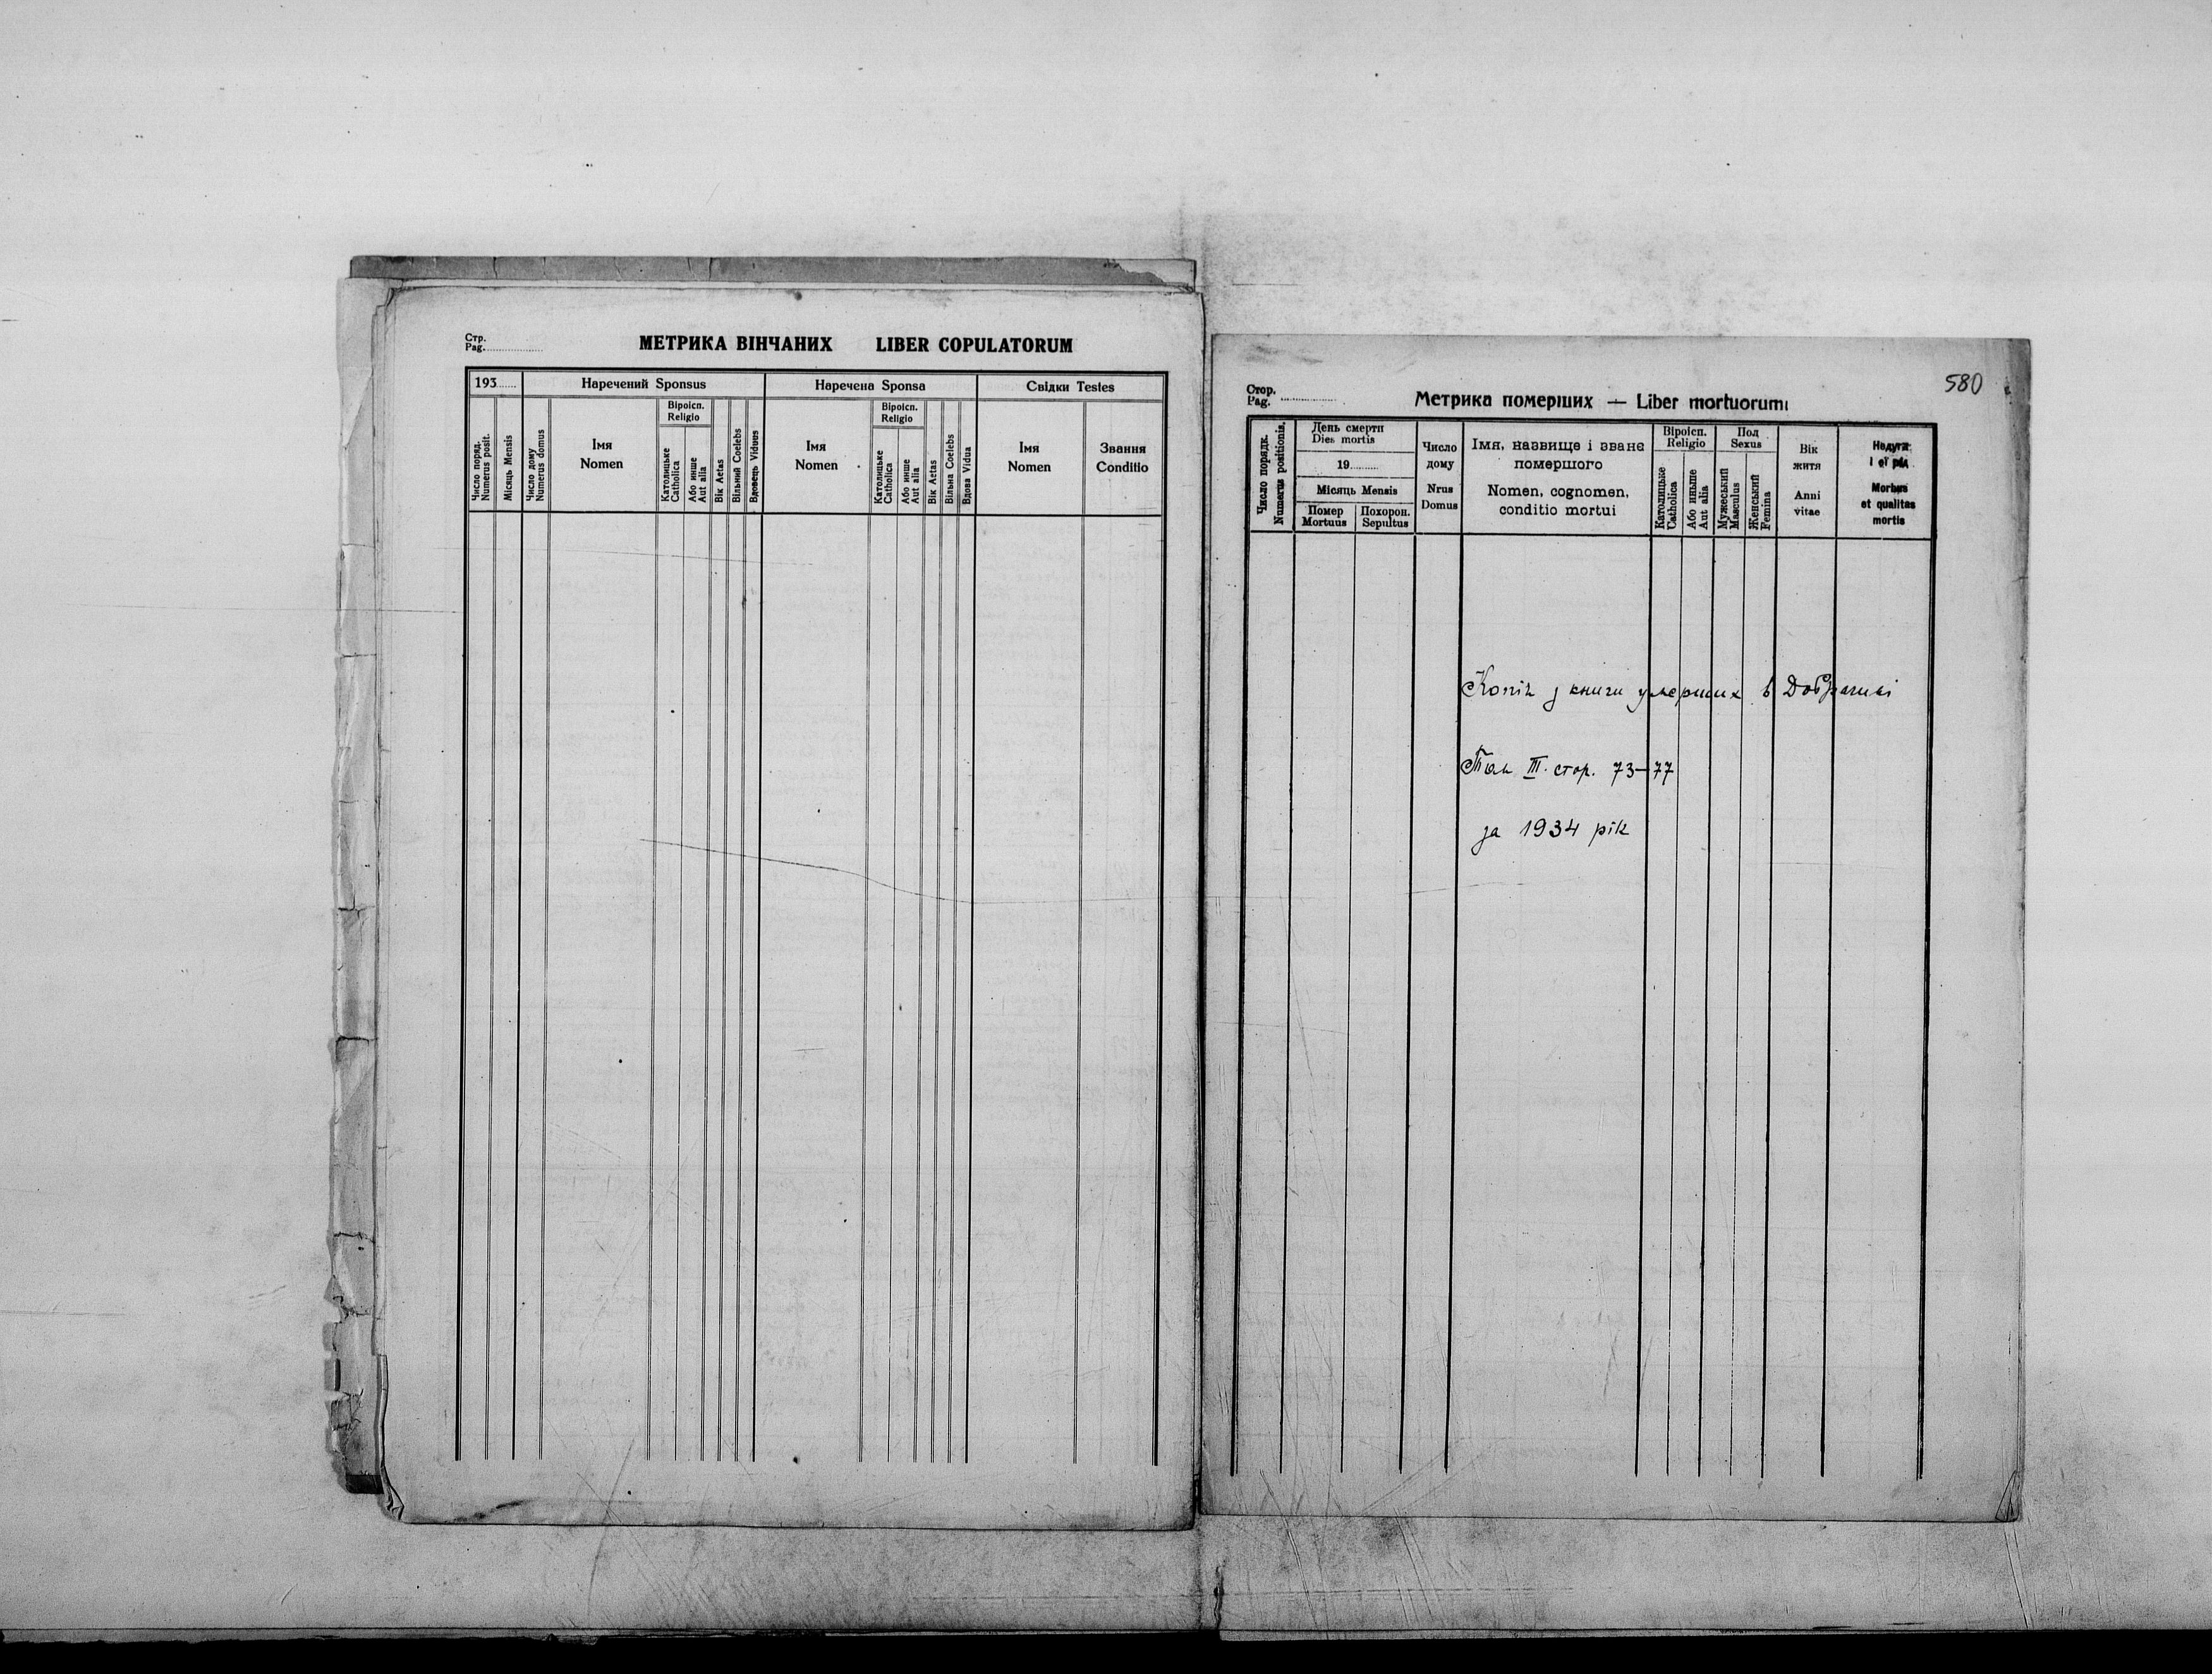 Стр.
Pag.
МЕТРИКА ВІНЧАНИХ LIBER COPULATORUM
193
Наречений Sponsus
Наречена Sponsa
Свідки Testes
Число поряд.
Numerus posit.
Місяць Mensis
Число дому
Numerus domus
Імя
Nomen
Віроісп.
Religio
Католицьке
Catholica
Або инше
Aut alia
Вік Aetas
Вільний Coelebs
Вдовець Viduus
Імя
Nomen
Віроісп.
Religio
Католицьке
Catholica
Або инше
Aut alia
Вік Aetas
Вільна Coelebs
Вдова Vidua
Імя
Nomen
Звання
Conditio
580
Стор.
Pag.
Метрика померших — Liber mortuorum
Число порядк.
Numerus positionis.
День смерти
Dies mortis
19
Місяць Mensis
Помер
Mortuus
Похорон.
Sepultus
Число
дому
Nrus
Domus
Імя, назвище і зване
помершого
Nomen, cognomen,
conditio mortui
Віроісп.
Religio
Католицьке
Catholica
Або иньше
Aut alia
Пол
Sexus
Мужеський
Masculus
Женський
Femina
Вік
житя
Anni
vitae
Недуга
і єї рід
Morbus
et qualitas
mortis
Копія з книги умерших в Добрячині
Том III. стор. 73–77
за 1934 рік